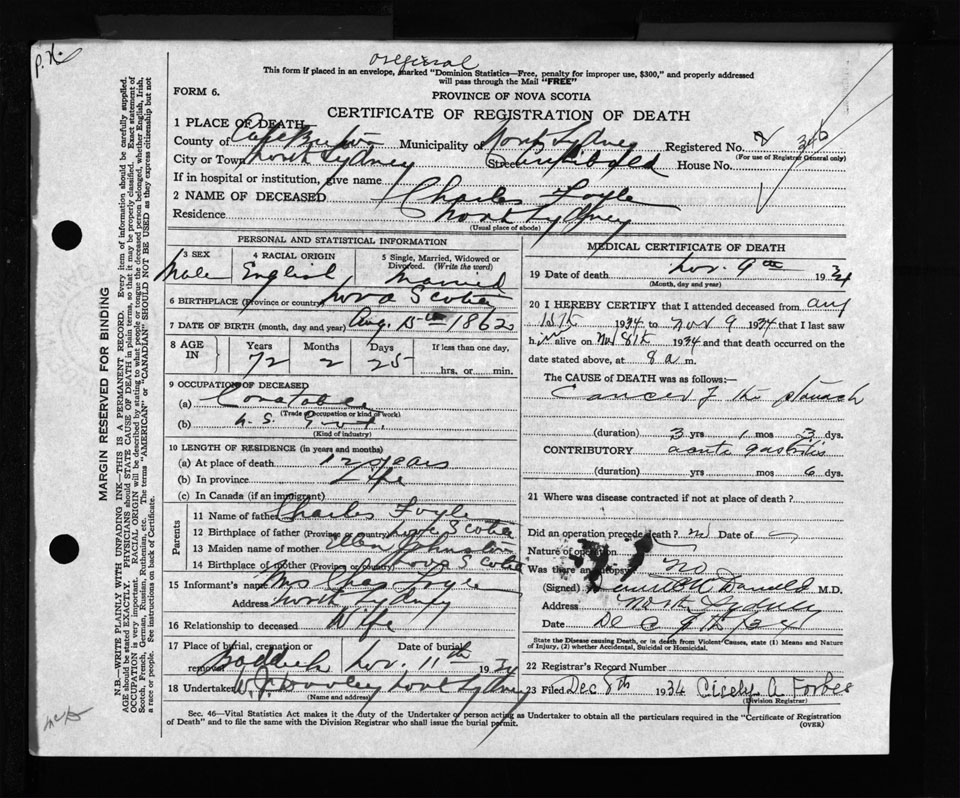 P. H.
original
This form if placed in an envelope, marked "Dominion Statistics—Free, penalty for improper use, $300," and properly addressed
will pass through the Mail "FREE"
FORM 6.
PROVINCE OF NOVA SCOTIA
CERTIFICATE OF REGISTRATION OF DEATH
1 PLACE OF DEATH
County of Cape Breton Municipality North Sydney Registered No. 340
(For use of Registrar General only)
City or Town North Sydney Street Archibald House No.
If in hospital or institution, give name
2 NAME OF DECEASED Charles Foyle
Residence North Sydney
(Usual place of abode)
PERSONAL AND STATISTICAL INFORMATION
3 SEX 4 RACIAL ORIGIN 5 Single, Married, Widowed or Divorced. (Write the word)
Male English Married
6 BIRTHPLACE (Province or country) Nova Scotia
7 DATE OF BIRTH (month, day and year) Aug. 15th 1862
8 AGE IN Years Months Days If less than one day,
72 2 25 hrs. or min.
9 OCCUPATION OF DECEASED
(a) Constable
(Trade, occupation or kind of work)
(b) N. S. Gvt.
(Kind of industry)
10 LENGTH OF RESIDENCE (in years and months)
(a) At place of death 12 years
(b) In province Life
(c) In Canada (if an immigrant)
Parents
11 Name of father Charles Foyle
12 Birthplace of father (Province or country) Nova Scotia
13 Maiden name of mother Ellen Johnston
14 Birthplace of mother (Province or country) Nova Scotia
15 Informant's name Mrs Chas Foyle
Address North Sydney
16 Relationship to deceased Wife
17 Place of burial, cremation or removal Date of burial
Baddeck Nov. 11th 1934
18 Undertaker W. J. Dooley North Sydney
(Name and address)
MEDICAL CERTIFICATE OF DEATH
19 Date of death Nov. 9th 1934
(Month, day and year)
20 I HEREBY CERTIFY that I attended deceased from Aug
1934 to Nov 9 1934 that I last saw
him alive on Nov 8th 1934 and that death occurred on the
date stated above, at 8 a m.
The CAUSE of DEATH was as follows:—
Cancer of the stomach
(duration) 3 yrs 1 mos 3 dys.
CONTRIBUTORY acute gastritis
(duration) yrs mos 6 dys.
21 Where was disease contracted if not at place of death?
Did an operation precede death? no Date of
Nature of operation
Was there an autopsy? No
(Signed) McDonald M.D.
Address North Sydney
Date Dec 34
State the Disease causing Death, or in death from Violent Causes, state (1) Means and Nature
of Injury, (2) whether Accidental, Suicidal or Homicidal.
22 Registrar's Record Number
23 Filed Dec 8th 1934 Cicely A. Forbes
(Division Registrar)
Sec. 46—Vital Statistics Act makes it the duty of the Undertaker or person acting as Undertaker to obtain all the particulars required in the "Certificate of Registration
of Death" and to file the same with the Division Registrar who shall issue the burial permit.
(OVER)
MARGIN RESERVED FOR BINDING
N.B.—WRITE PLAINLY WITH UNFADING INK—THIS IS A PERMANENT RECORD. Every item of information should be carefully supplied.
AGE should be stated EXACTLY. PHYSICIANS should STATE CAUSE OF DEATH in plain terms, so that it may be properly classified. Exact statement of
OCCUPATION is very important. RACIAL ORIGIN will be described by stating to what people or tongue the deceased person belonged, whether English, Irish,
Scotch, French, German, Russian, Ruthenian, etc. The terms "AMERICAN" or "CANADIAN" SHOULD NOT BE USED as they express citizenship but not
a race or people. See instructions on back of Certificate.